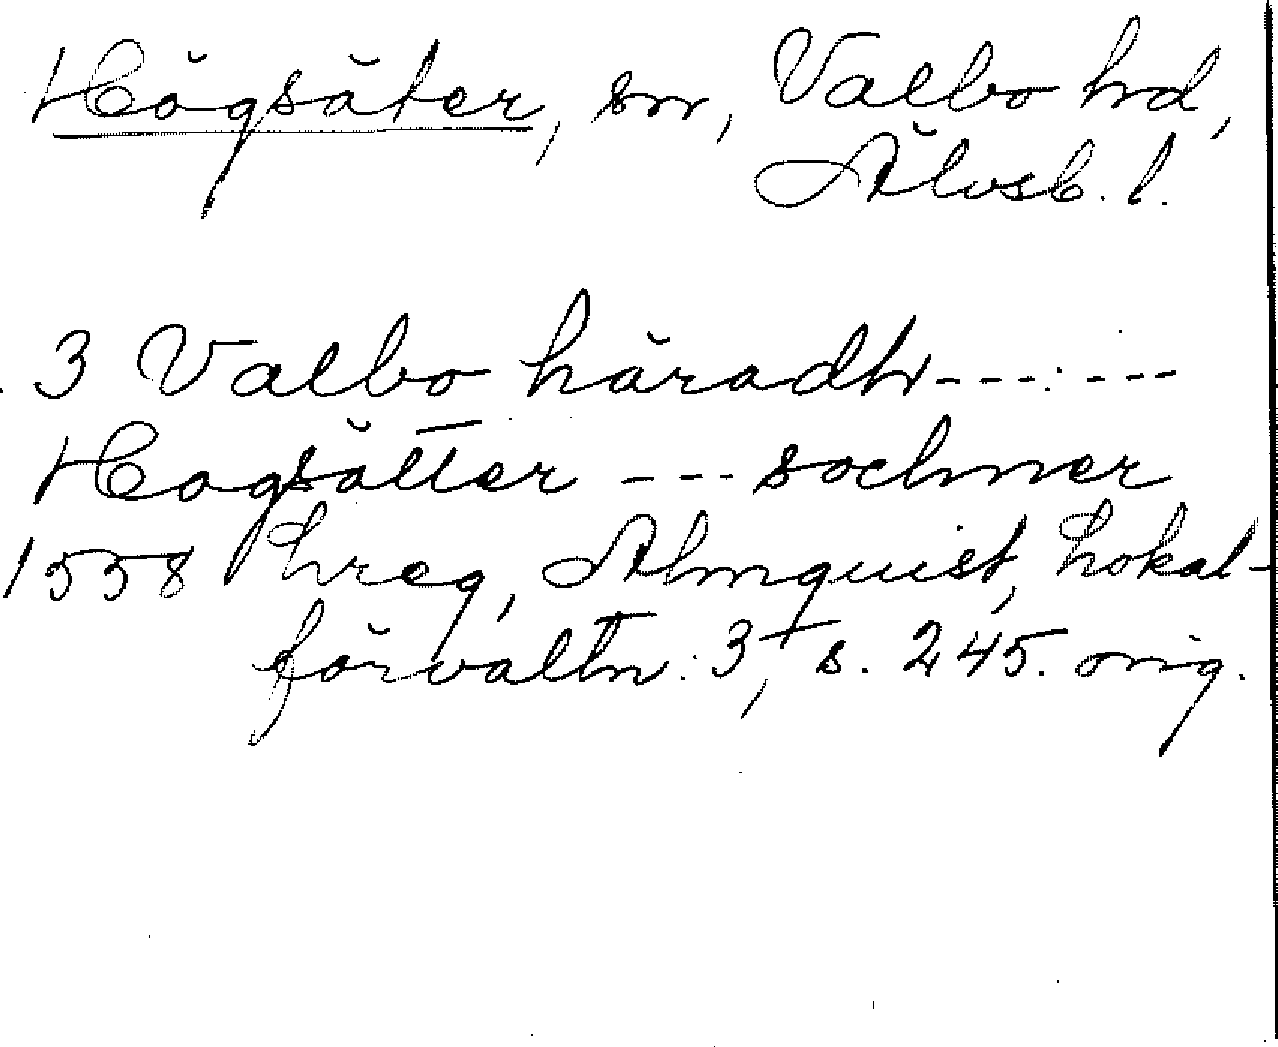 Högsäter, sn, Valbo hd,
Älvsb. l.
3 Valbo häradh--- : ---
Hogsätter --- sochner
1558 Lreg, Almquist, Lokal-
förvaltn. 3, s. 245. orig.